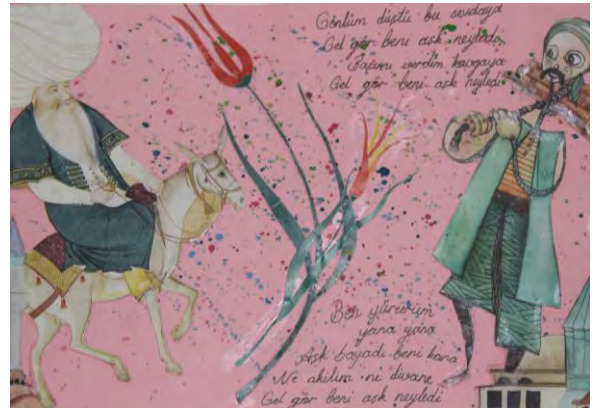 Gönlüm düştü bu sevdaya
Gel gör beni aşk neyledi
Başımı verdim kavgaya
Gel gör beni aşk neyledi
Ben yürürüm
yana yana
Aşk boyadı beni kana
Ne akilim ne divane
Gel gör beni aşk neyledi